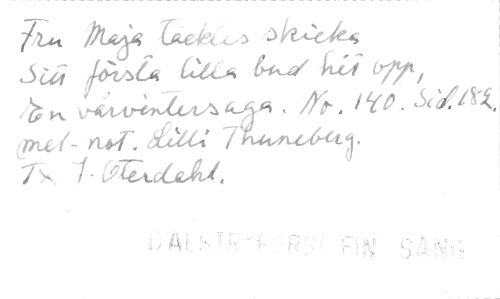 Fru Maja täckles skicka
Sitt första lilla bud hit opp,
En vårvintersaga. No. 140. Sid. 182.
mel-not. Lilli Thuneberg.
Tx J. Oterdahl.
DALSTR FORS FIN SÅNG